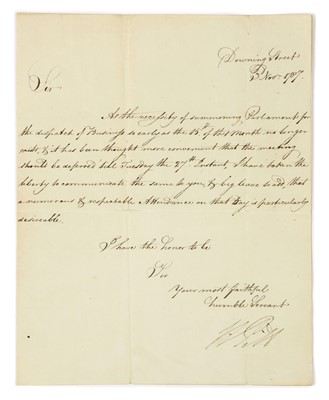 Downing Street
Nov.r 1787.
Sir
As the necessity of summoning Parliament for
the dispatch of Business so early as the 15th of this Month no longer
exists, & it has been thought more convenient that the meeting
should be deferred till Tuesday the 27th Instant, I have taken the
liberty to communicate the same to you, & beg leave to add, that
a numerous & respectable Attendance on that Day is particularly
desireable.
I have the honor to be
Sir
Your most faithful
humble Servant
W Pitt